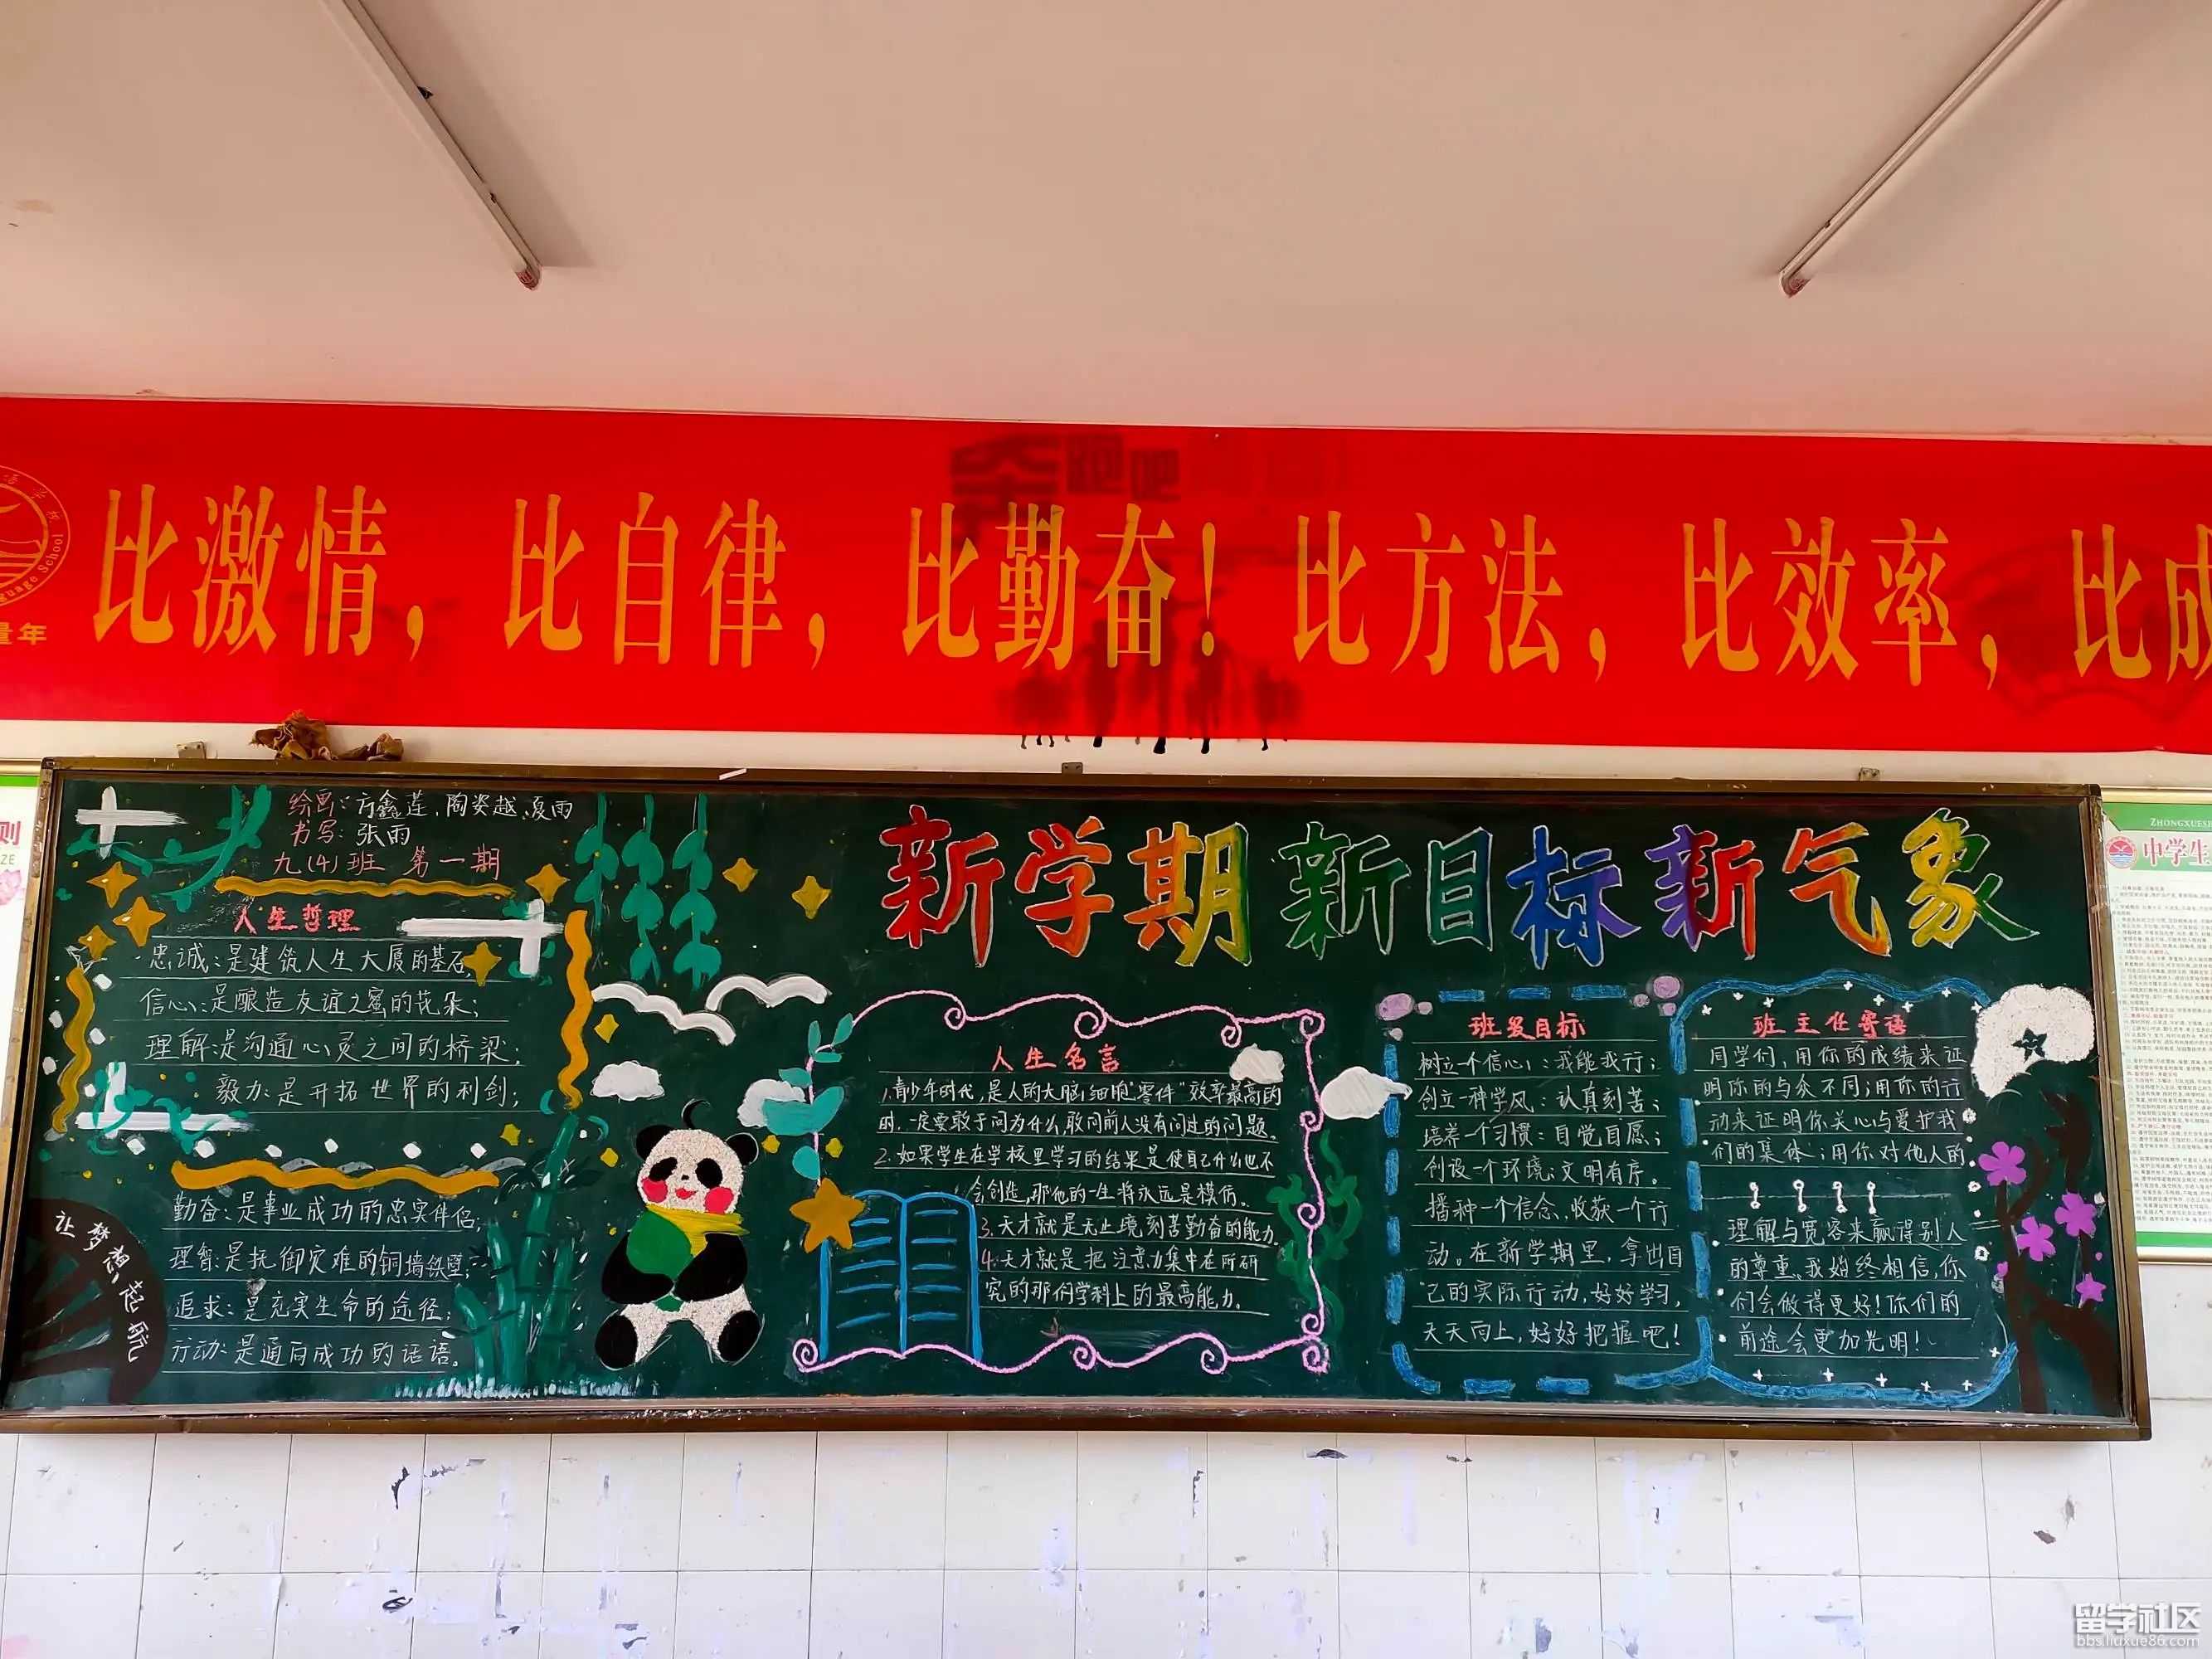 比激情，比自律，比勤奋！比方法，比效率，比成
量年
奔跑吧
绘画：方鑫莲、陶姿越、夏雨
书写：张雨
九(4)班 第一期
人生哲理
忠诚：是建筑人生大厦的基石，
信心：是酿造友谊之蜜的花朵；
理解：是沟通心灵之间的桥梁；
毅力：是开拓世界的利剑；
勤奋：是事业成功的忠实伴侣；
理智：是抚御灾难的铜墙铁壁；
追求：是充实生命的途径；
行动：是通向成功的话语。
让梦想起航
新学期新目标新气象
人生名言
1.青少年时代，是人的大脑细胞"零件"效率最高的
时，一定要敢于问为什么敢问前人没有问过的问题。
2.如果学生在学校里学习的结果是使自己什么也不
会创造，那他的一生将永远是模仿。
3.天才就是无止境刻苦勤奋的能力。
4.天才就是把注意力集中在所研
究的那们学科上的最高能力。
班级目标
树立一个信心：我能我行；
创立一种学风：认真刻苦；
培养一个习惯：自觉自愿；
创设一个环境：文明有序。
播种一个信念，收获一个行
动。在新学期里，拿出自
己的实际行动，好好学习，
天天向上，好好把握吧！
班主任寄语
同学们，用你的成绩来证
明你的与众不同；用你的行
动来证明你关心与爱护我
们的集体；用你对他人的
理解与宽容来赢得别人
的尊重。我始终相信，你
们会做得更好！你们的
前途会更加光明！
则
ZE
ZHONGXUESH
中学生
留学社区
bbs.liuxue86.com